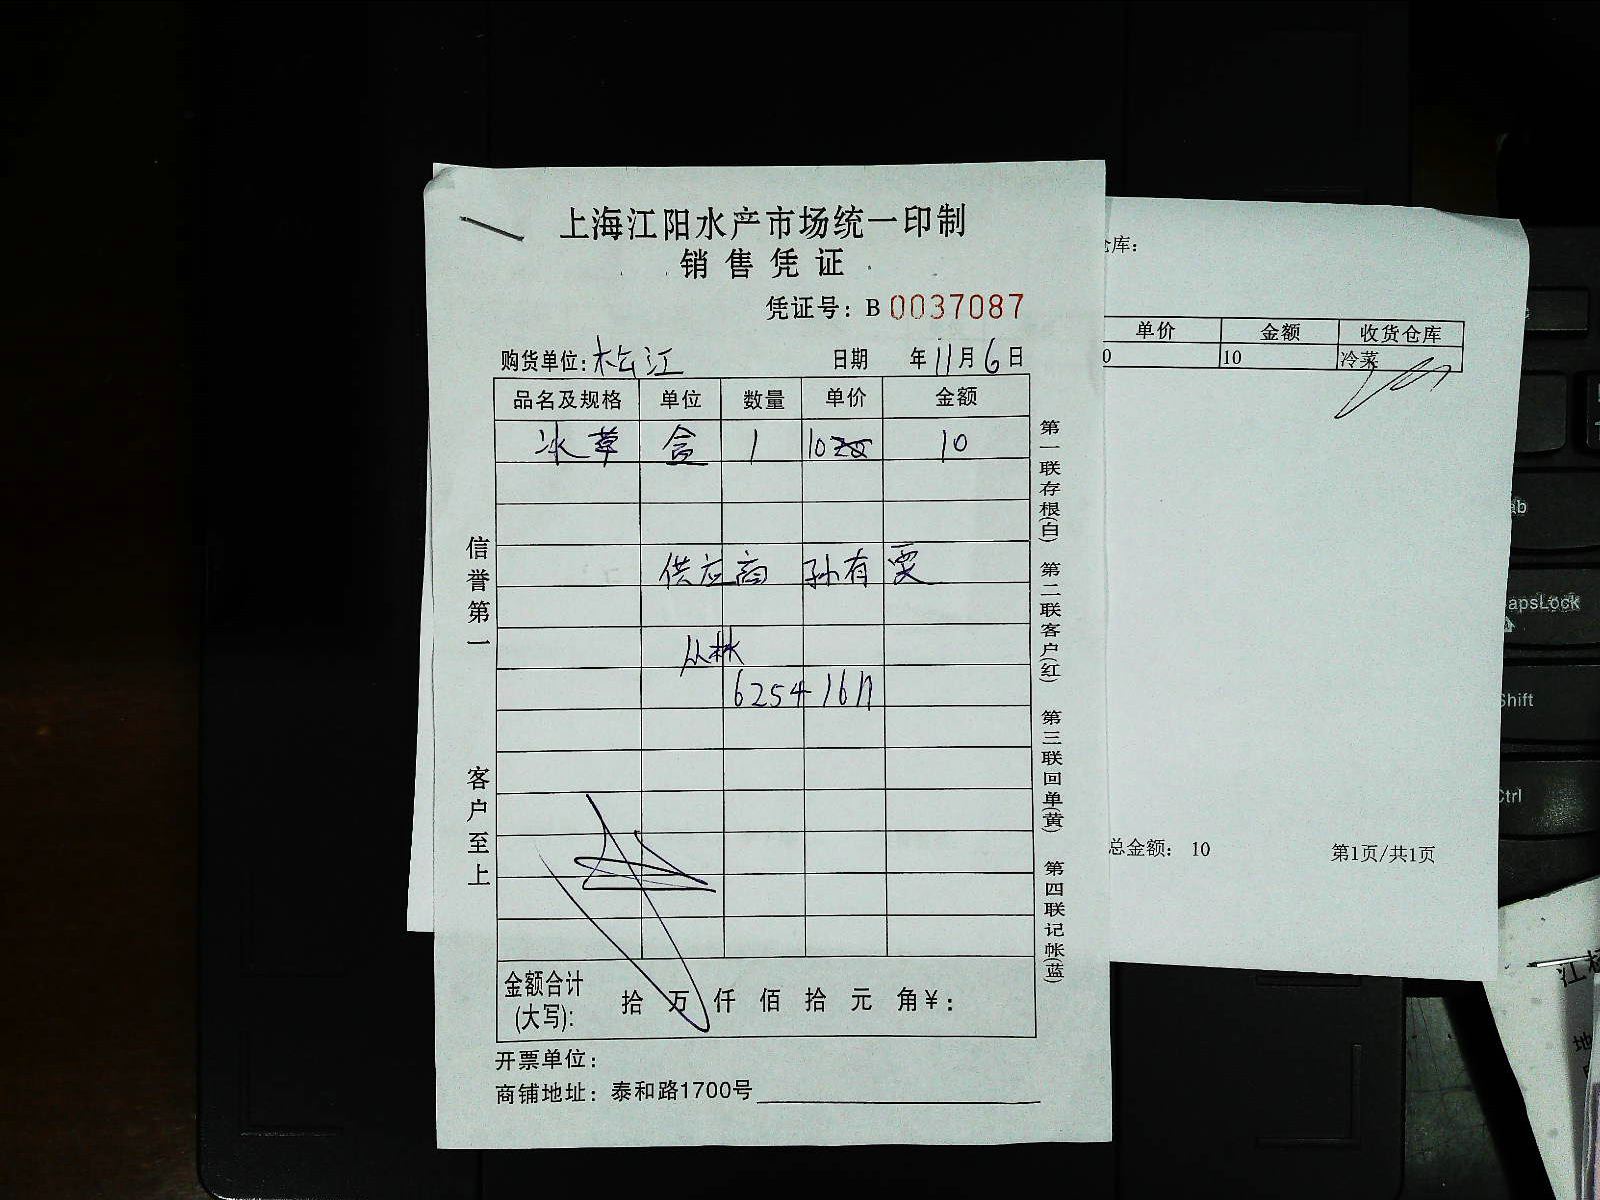 上海江阳水产市场统一印制
销售凭证
凭证号：B 0037087
购货单位：松江 日期 年11月6日
品名及规格 单位 数量 单价 金额
冰草 盒 1 10 10
供应商 孙有
丛林
6254 1617
金额合计(大写): 拾 万 仟 佰 拾 元 角 ¥：
开票单位：
商铺地址：泰和路1700号
信誉第一
客户至上
第一联存根(白) 第二联客户(红) 第三联回单(黄) 第四联记帐(蓝)
仓库：
单价 金额 收货仓库
0 10 冷菜
总金额： 10 第1页/共1页
ab
apsLock
Shift
Ctrl
江
地